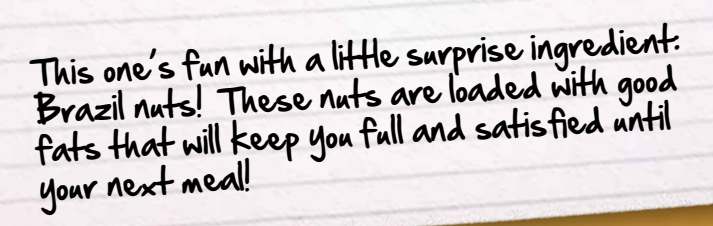 This one's fun with a little surprise ingredient.
Brazil nuts! These nuts are loaded with good
fats that will keep you full and satisfied until
your next meal!